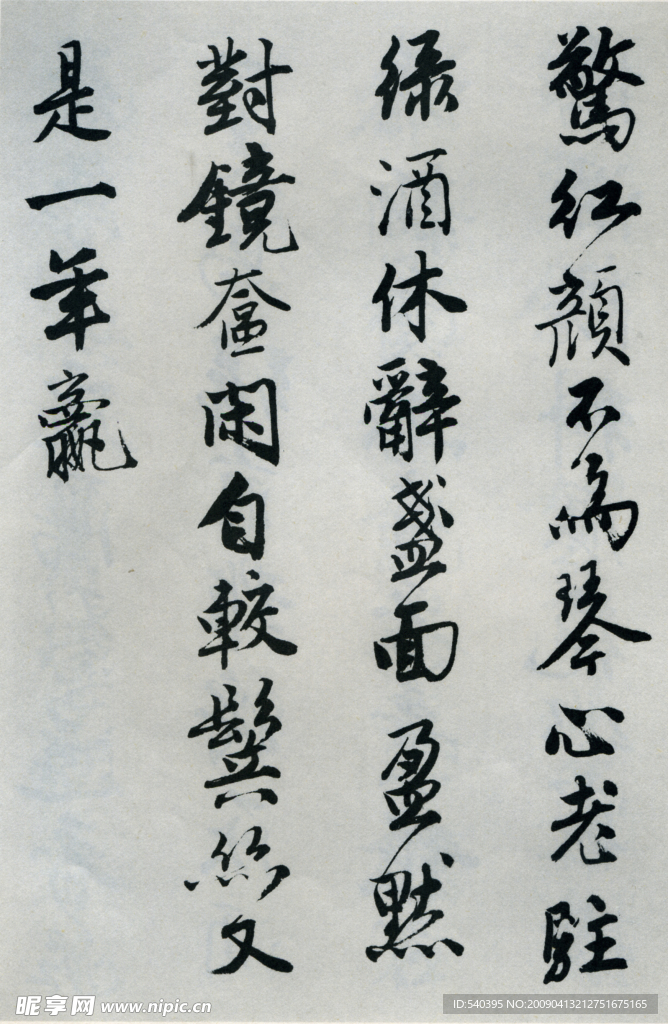 驚紅顔不為琴心老駐
緑酒休辭盞面盈默
對鏡奩閑自較鬓絲又
是一年贏
昵享网 www.nipic.cn
ID:540395 NO:20090413212751675165